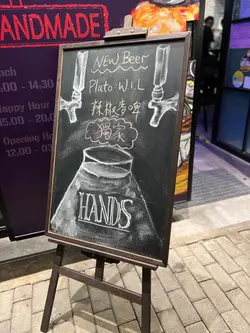 HANDMADE
nch
- 14:30
appy Hour
15.00 - 20.00
Opening He
12.00 - 03
New Beer
Plato W.I.L
辣椒麥啤
獨家
HANDS